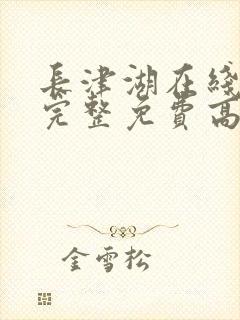 長津湖在綫
完整免費高
金雪松